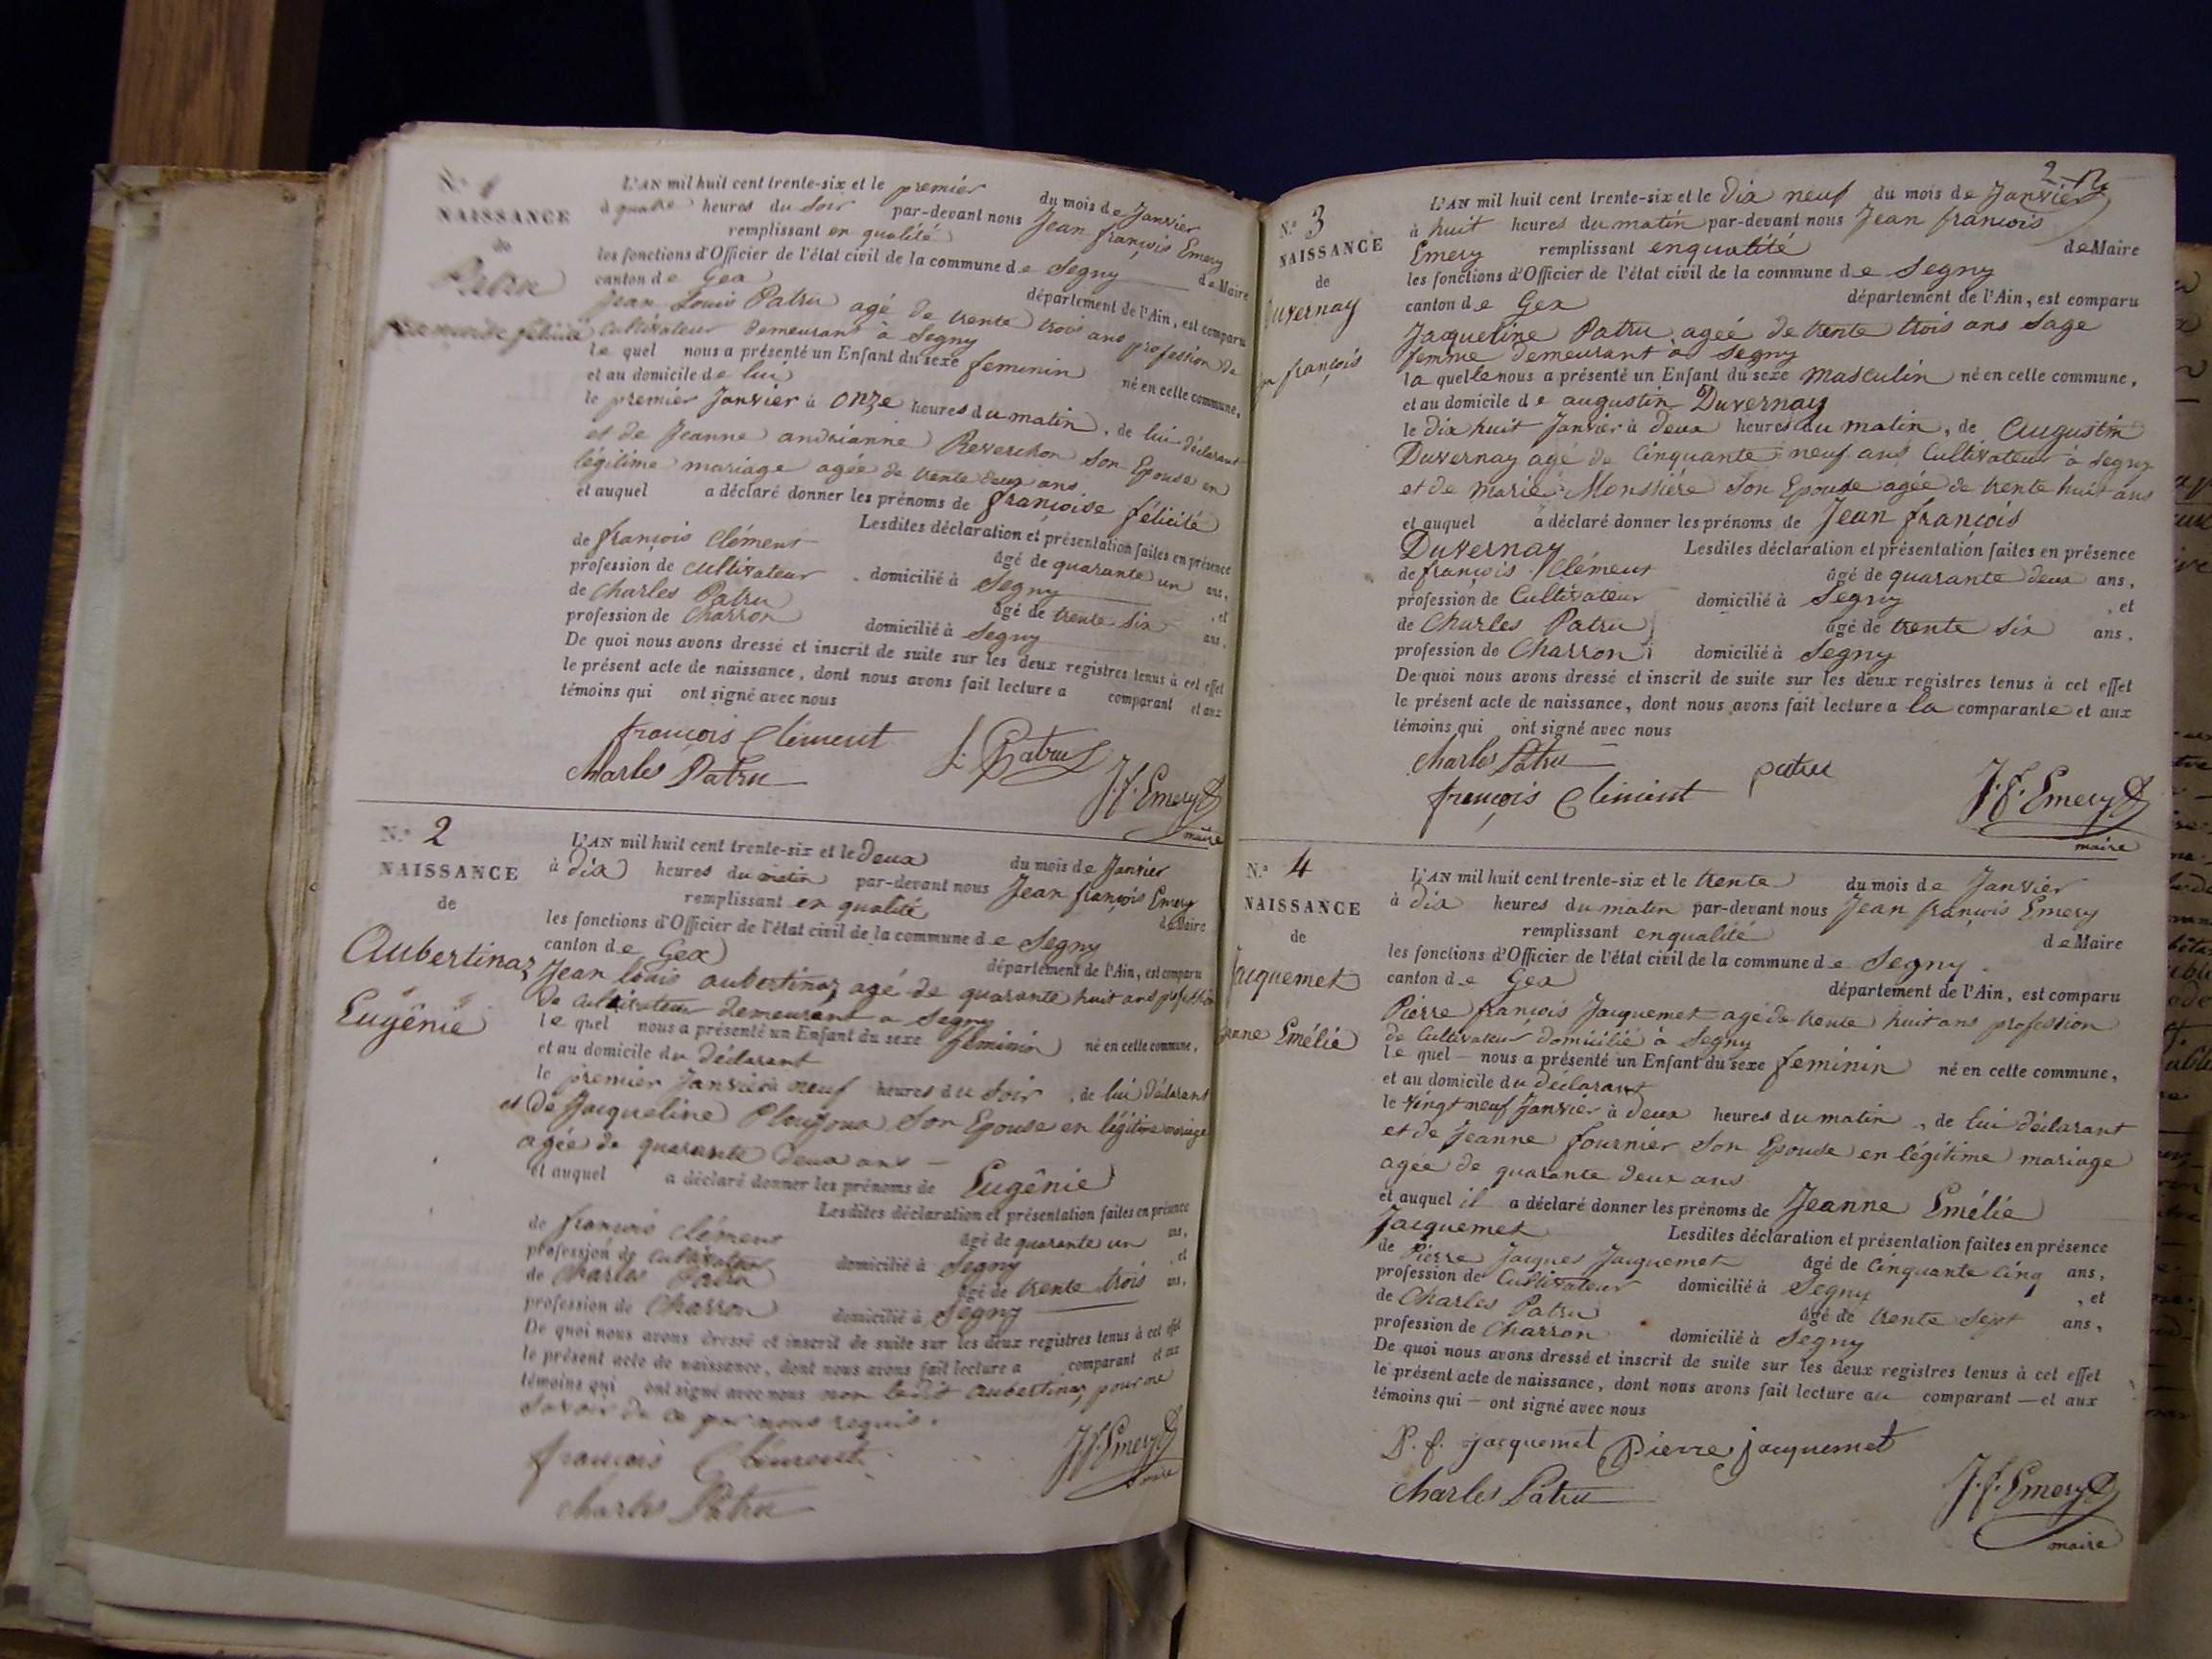 N.º 1
NAISSANCE
de
Patru
françoise félicité
L'AN mil huit cent trente-six et le premier du mois de Janvier
à quatre heures du Soir par-devant nous Jean françois Emery
remplissant en qualité de Maire
les fonctions d'Officier de l'état civil de la commune de Segny
canton de Gex département de l'Ain, est comparu
Jean Louis Patru agé de trente trois ans profession de
Cultivateur demeurant à Segny
le quel nous a présenté un Enfant du sexe feminin né en cette commune,
et au domicile de lui
le premier Janvier à onze heures du matin, de lui déclarant
et de Jeanne andrianne Reverchon Son Epouse en
légitime mariage agée de trente deux ans
et auquel a déclaré donner les prénoms de françoise félicité
Lesdites déclaration et présentation faites en présence
de françois Clément âgé de quarante un ans,
profession de cultivateur domicilié à Segny , et
de Charles Patru âgé de trente Six ans,
profession de Charron domicilié à Segny
De quoi nous avons dressé et inscrit de suite sur les deux registres tenus à cet effet
le présent acte de naissance, dont nous avons fait lecture a comparant et aux
témoins qui ont signé avec nous
françois Clément L. Patru
Charles Patru J. f. Emery
maire
N.º 2
NAISSANCE
de
Aubertinaz
Eugênie
L'AN mil huit cent trente-six et le Deux du mois de Janvier
à Dix heures du matin par-devant nous Jean françois Emery
remplissant en qualité de Maire
les fonctions d'Officier de l'état civil de la commune de Segny
canton de Gex département de l'Ain, est comparu
Jean louis aubertinaz agé de quarante huit ans profession
De cultivateur demeurant a Segny
le quel nous a présenté un Enfant du sexe féminin né en cette commune,
et au domicile du déclarant
le premier Janvier à neuf heures du Soir , de lui déclarant
et de Jacqueline Son Epouse en légitime mariage
agée de quarante deux ans
et auquel a déclaré donner les prénoms de Eugênie
Lesdites déclaration et présentation faites en présence
de françois clément âgé de quarante un ans,
profession de cultivateur domicilié à Segny , et
de Charles Patru âgé de trente trois ans,
profession de Charron domicilié à Segny
De quoi nous avons dressé et inscrit de suite sur les deux registres tenus à cet effet
le présent acte de naissance, dont nous avons fait lecture a comparant et aux
témoins qui ont signé avec nous non ledit aubertinaz pour ne
Savoir de ce par nous requis.
françois Clément J. f. Emery
maire
Charles Patru
2
N.º 3
NAISSANCE
de
Duvernay
Jean françois
L'AN mil huit cent trente-six et le Dix neuf du mois de Janvier
à huit heures du matin par-devant nous Jean francois
Emery remplissant en qualité de Maire
les fonctions d'Officier de l'état civil de la commune de Segny
canton de Gex département de l'Ain, est comparu
Jacqueline Patru, agée de trente trois ans Sage
femme demeurant à Segny
la quelle nous a présenté un Enfant du sexe masculin né en cette commune,
et au domicile de augustin Duvernay
le dix huit Janvier à deux heures du matin, de Augustin
Duvernay agé de Cinquante neuf ans Cultivateur à Segny
et de marie Son Epouse agée de trente huit ans
et auquel a déclaré donner les prénoms de Jean françois
Duvernay Lesdites déclaration et présentation faites en présence
de françois Clément âgé de quarante deux ans,
profession de Cultivateur domicilié à Segny , et
de Charles Patru âgé de trente Six ans,
profession de Charron domicilié à Segny
De quoi nous avons dressé et inscrit de suite sur les deux registres tenus à cet effet
le présent acte de naissance, dont nous avons fait lecture a la comparante et aux
témoins qui ont signé avec nous
Charles Patru patru
françois Clément J. f. Emery
maire
N.º 4
NAISSANCE
de
Jacquemet
Jeanne Emélie
L'AN mil huit cent trente-six et le trente du mois de Janvier
à dix heures du matin par-devant nous Jean françois Emery
remplissant en qualité de Maire
les fonctions d'Officier de l'état civil de la commune de Segny
canton de Gex département de l'Ain, est comparu
Pierre françois Jacquemet agé de trente huit ans profession
de Cultivateur domicilié à Segny
le quel nous a présenté un Enfant du sexe feminin né en cette commune,
et au domicile du déclarant
le vingt neuf Janvier à deux heures du matin , de lui déclarant
et de Jeanne fournier Son Epouse en légitime mariage
agée de quarante deux ans
et auquel il a déclaré donner les prénoms de Jeanne Emélie
Jacquemet Lesdites déclaration et présentation faites en présence
de Pierre Jacques Jacquemet âgé de Cinquante Cinq ans,
profession de Cultivateur domicilié à Segny , et
de Charles Patru âgé de trente Sept ans,
profession de Charron domicilié à Segny
De quoi nous avons dressé et inscrit de suite sur les deux registres tenus à cet effet
le présent acte de naissance, dont nous avons fait lecture au comparant — et aux
témoins qui — ont signé avec nous
P. f. jacquemet Pierre jacquemet
Charles Patru J. f. Emery
maire